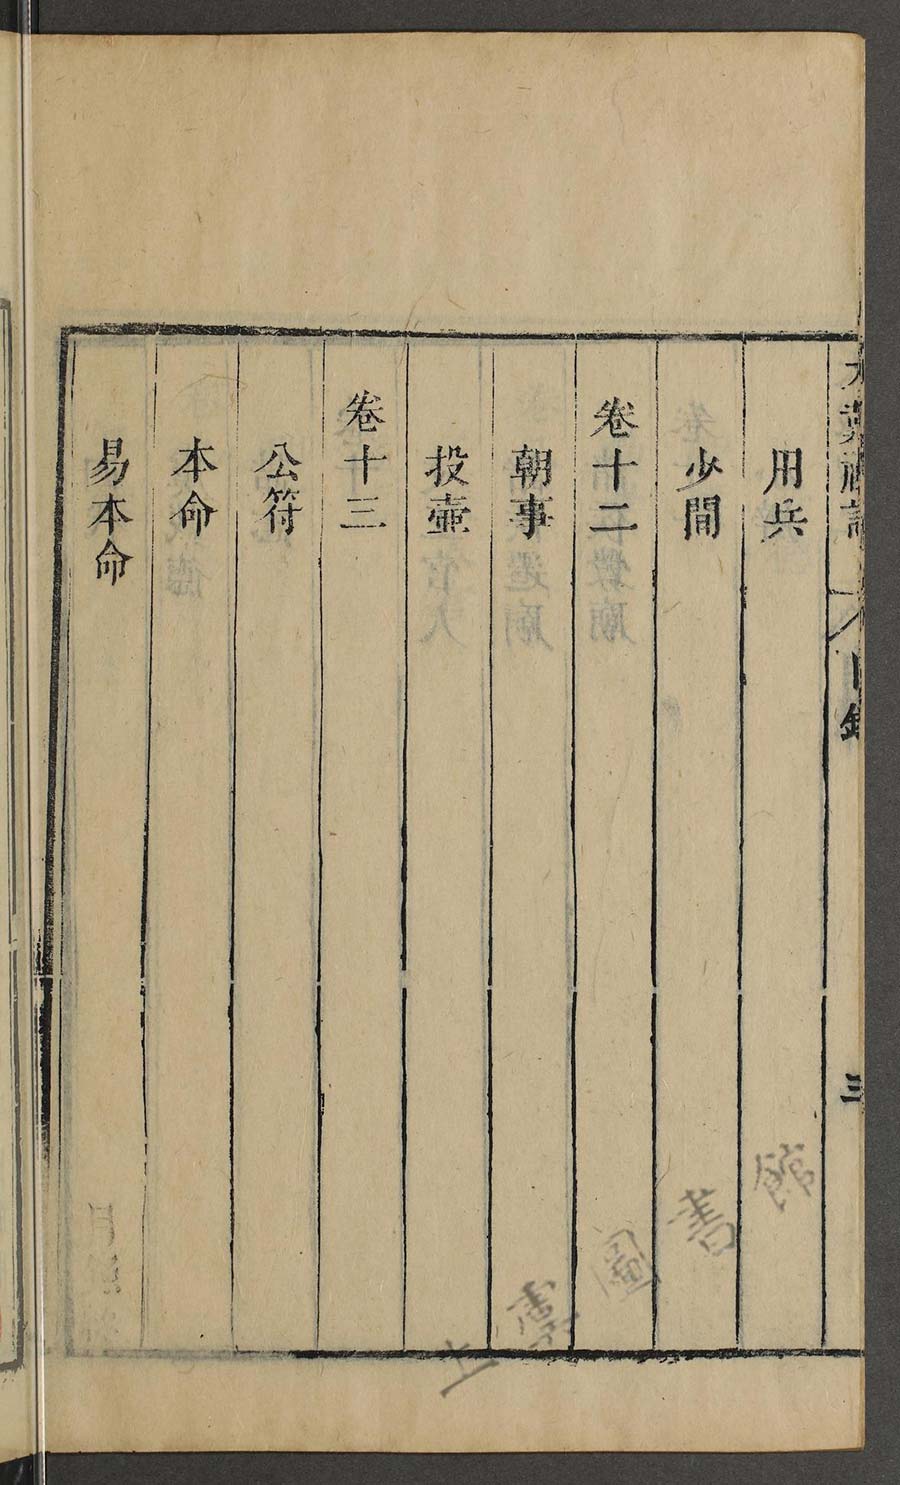 大戴禮記 目錄 三
用兵
少閒
卷十二
朝事
投壺
卷十三
公符
本命
易本命
圖書館